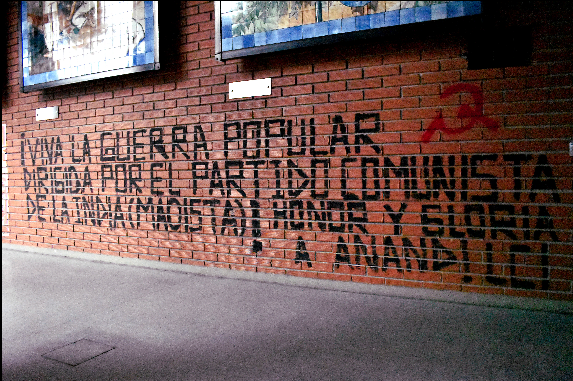 ¡VIVA LA GUERRA POPULAR
DIRIGIDA POR EL PARTIDO COMUNISTA
DE LA INDIA (MAOISTA)! HONOR Y GLORIA
A ANAND!